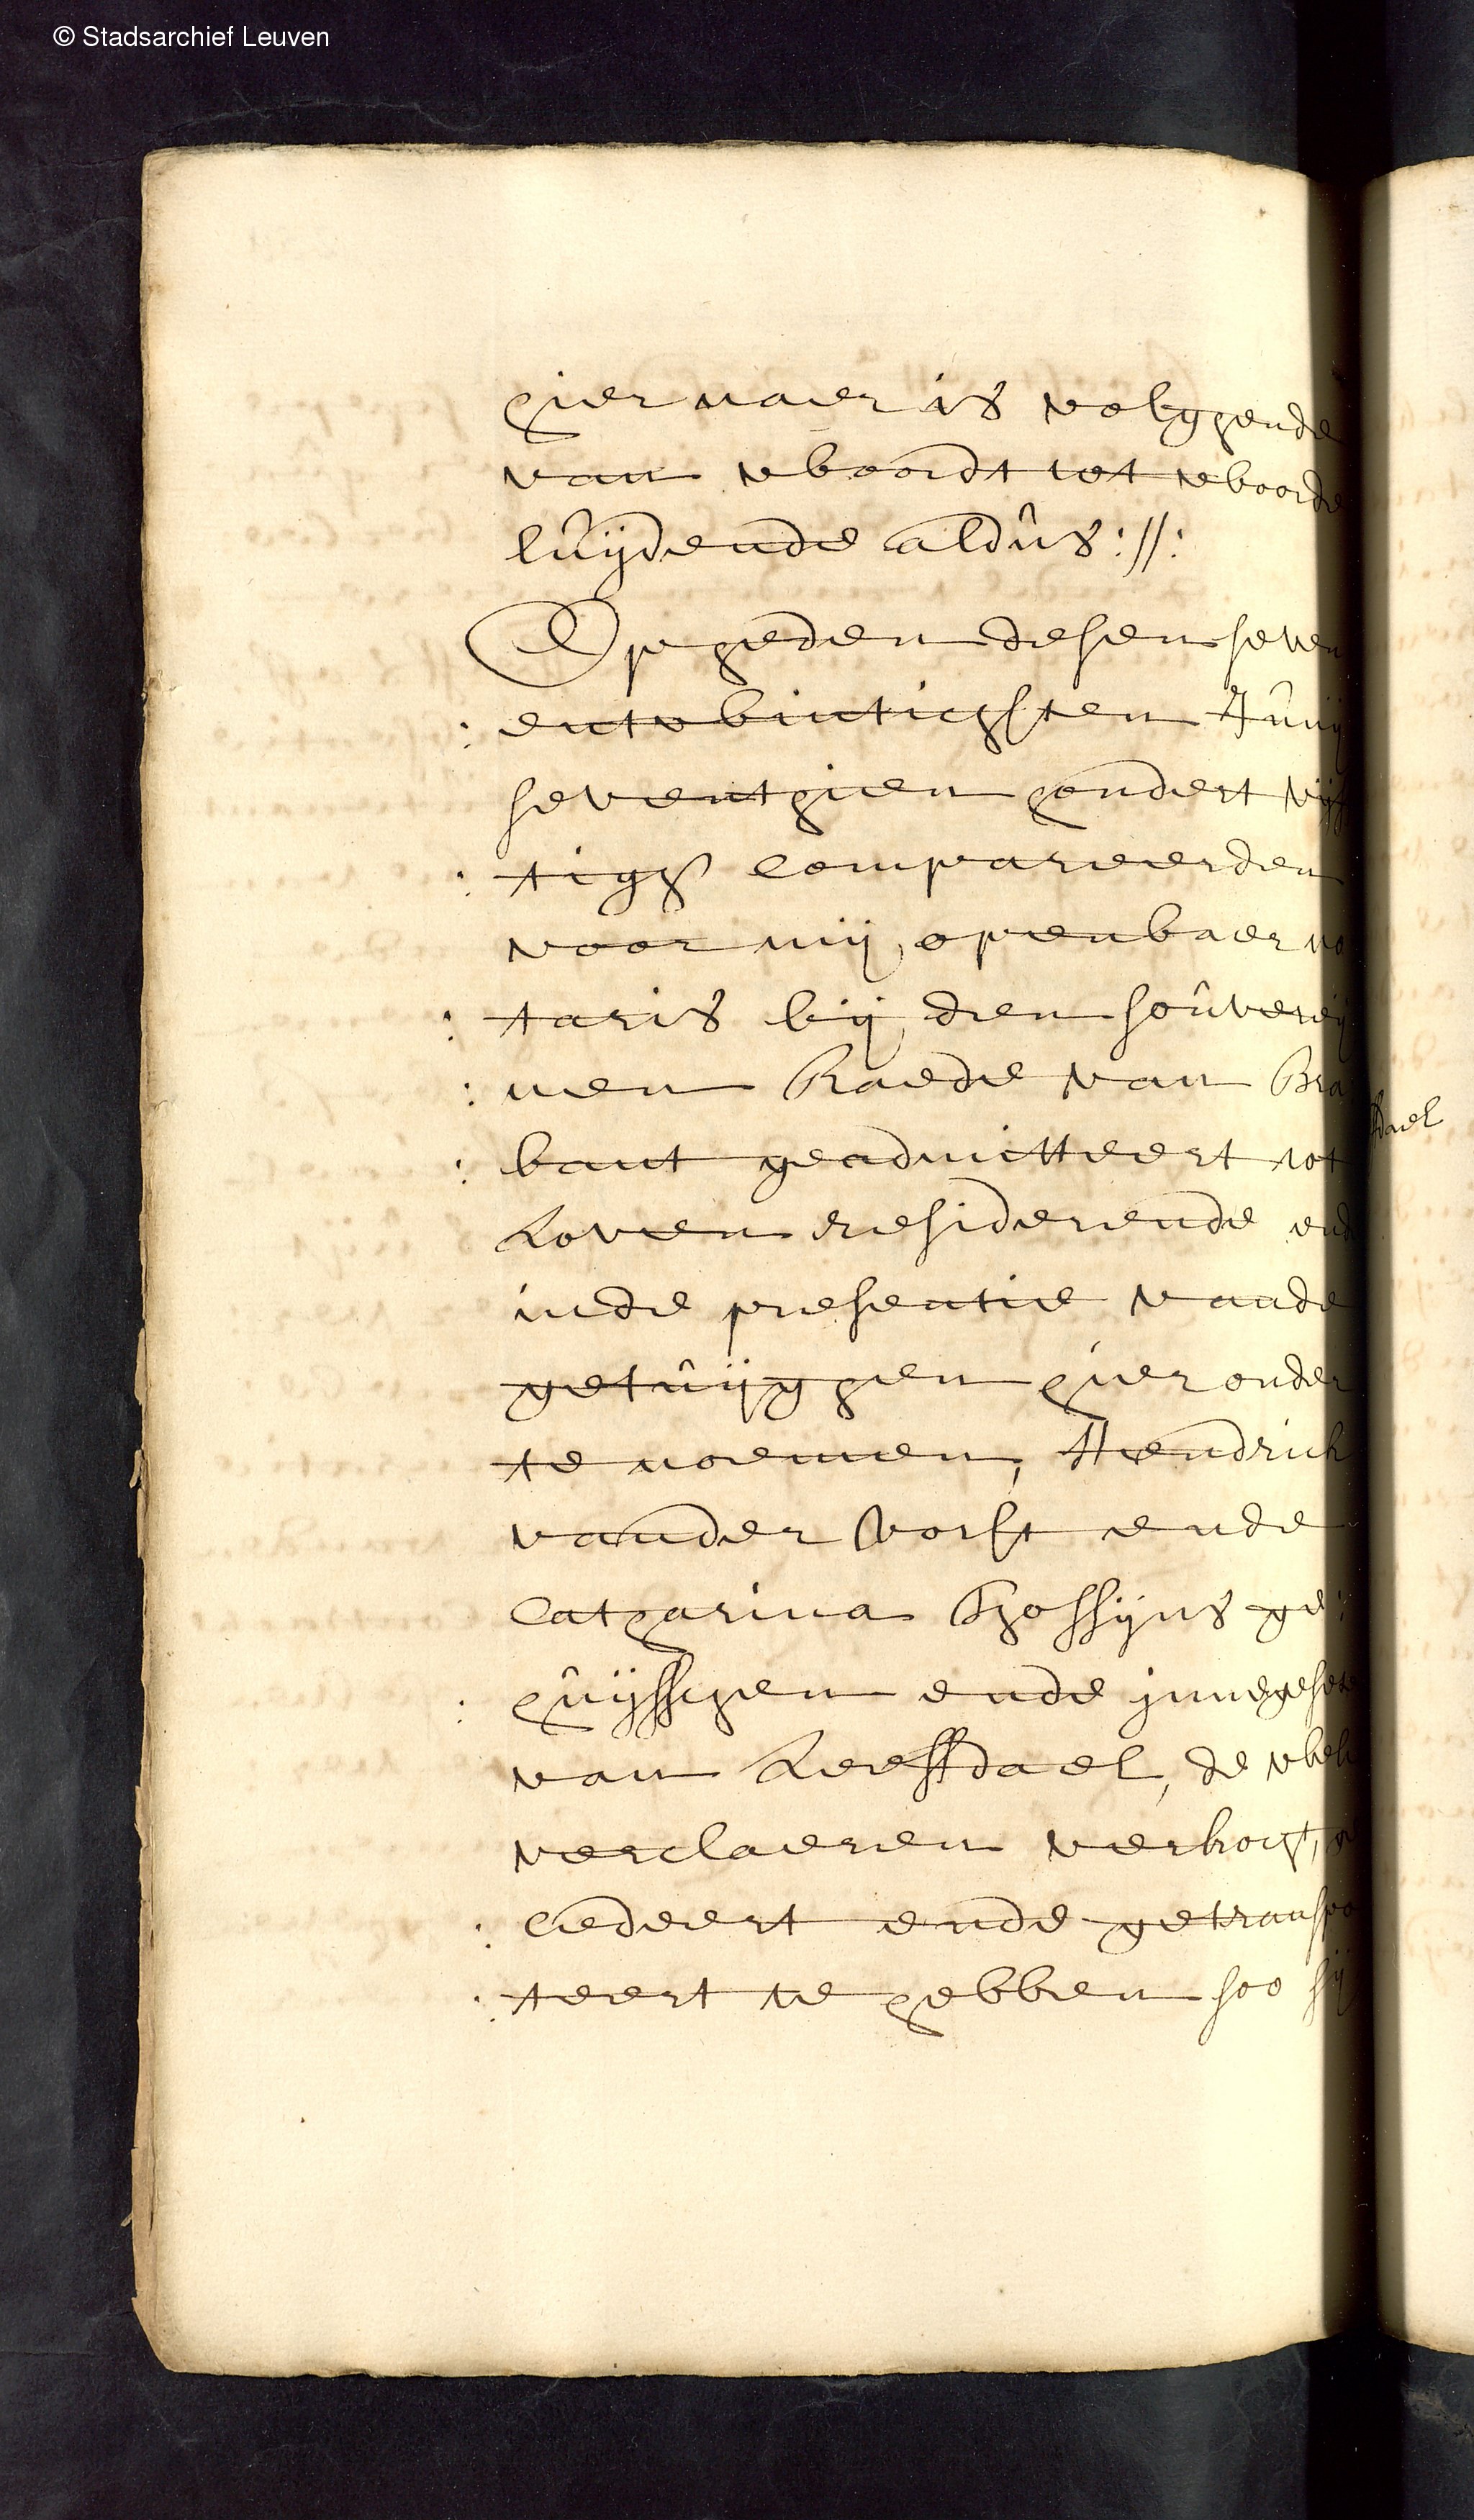 © Stadsarchief Leuven
hier naer is volghende
van woordt tot woorde
luijdende aldus ://:
Op heden desen seven
: entwintichsten Junij
seventhien hondert vijf
: tigh compareerden
voor mij openbaer no
: taris bij den souvereij
: nen Raede van Bra
: bant geadmitteert tot
Loven residerende ende
inde presentie vande
getuijghen hier onder
te noemen, Hendrick
vander Vorst ende
Catharina Ghossijns ge:
: huijsschen ende innegesete
van Leefdael, de welcke
verclaeren vercocht, ge
: cedeert ende getranspo
: teert te hebben soo sij
fdael